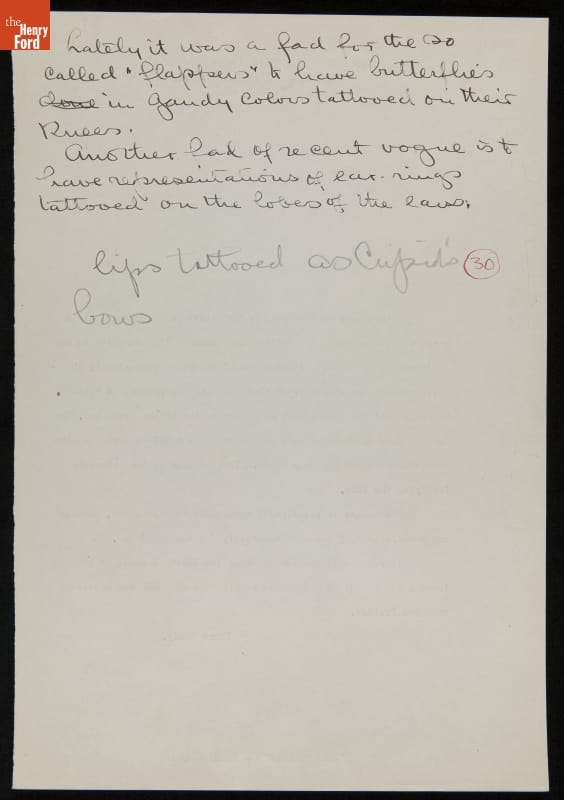 the
Henry
Ford
Lately it was a fad for the so
called "flappers" to have butterflies
done in gaudy colors tattooed on their
knees.
Another fad of recent vogue is to
have representations of ear-rings
tattooed on the lobes of the ears.
lips tattooed as Cupid's 30
bows